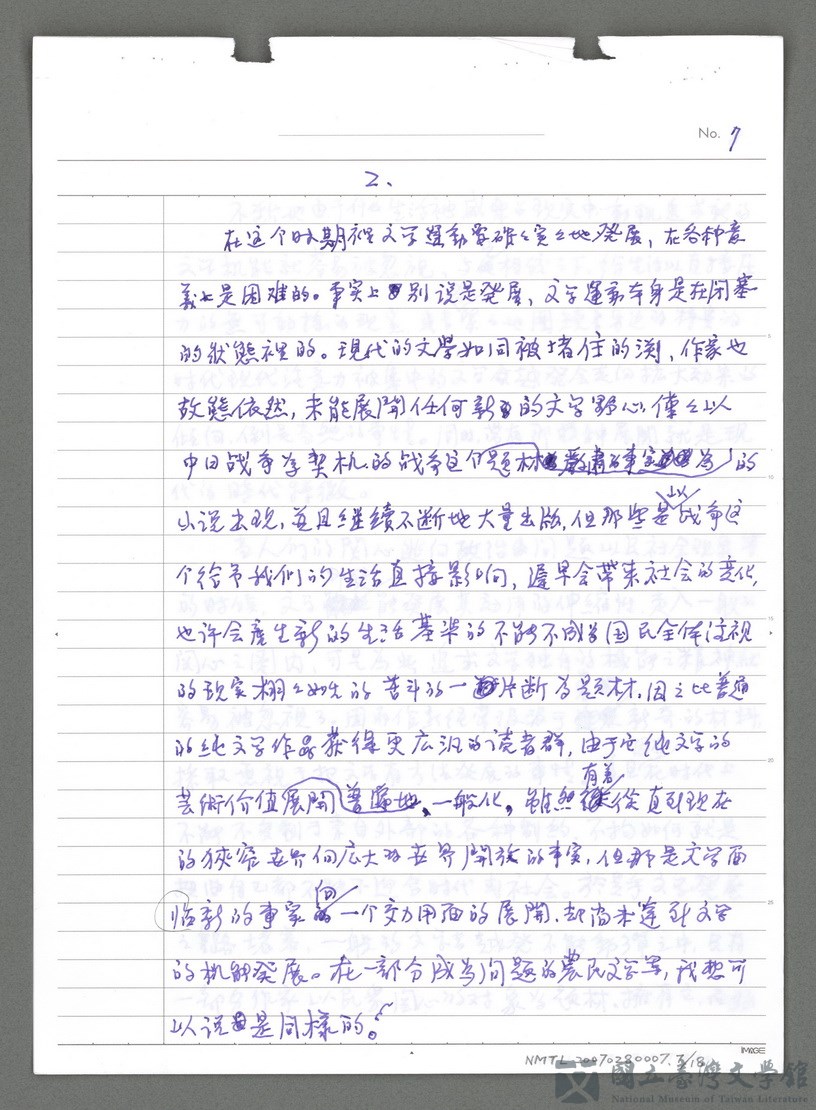 No. 7
2、
在这个时期裡文学運動要確々实々地発展，在各种意
義上是困难的。事实上别说是発展，文学運动本身是在闭塞
的狀態裡的。現代的文學如同被堵住的渕，作家也
故態依然，未能展開任何新的文学野心，僅々以
中日战争為契机的战争这个题材為的
小说出现，並且继续不断地大量出版，但那些是以战争这
个给予我们的生活直接影响，遲早会帶来社会的变化，
也许会產生新的生活基準的不能不成為国民全体注视
的现实栩々如生的苦斗的一片断為题材，因之比普通
的纯文学作品获得更広汎的读者群，由于它纯文学的
芸術价值展開普遍地、一般化，雖然有着從直到现在
的狹窄世界向広大的世界開放的事实，但那是文学面
临新的事家向一个交力用面的展開，却尚未達到文学
的机能発展。在一部分成為问题的農民文学等，我想可
以说是同樣的。
IMAGE
NMTL 20070280007.7/18
國立臺灣文學館
National Museum of Taiwan Literature